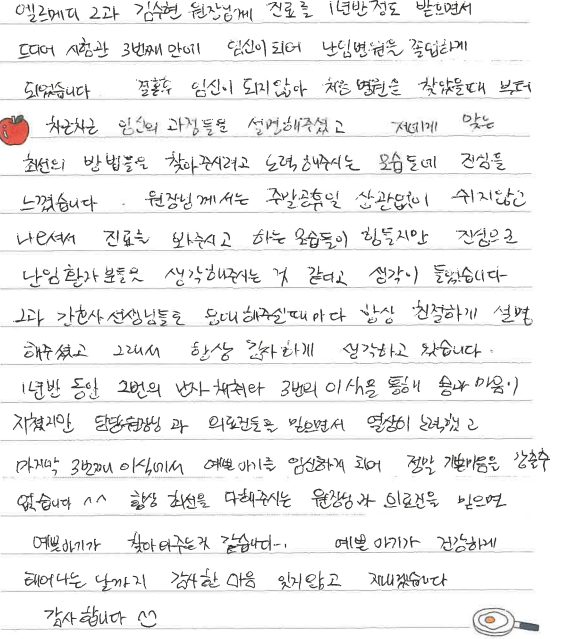 엘르메디 2과 김수현 원장님께 진료를 1년반정도 받으면서
드디어 시험관 3번째 만에 임신이 되어 난임병원을 졸업하게
되었습니다 결혼후 임신이 되지않아 처음 병원을 찾았을때 부터
차근차근 임신의 과정들을 설명해주셨고 저에게 맞는
최선의 방법들을 찾아주시려고 노력해주시는 모습들에 진심을
느꼈습니다. 원장님께서는 주말공휴일 상관없이 쉬지않고
나오셔서 진료를 봐주시고 하는 모습들이 힘들지만 진심으로
난임환자분들을 생각해주시는 것 같다고 생각이 들었습니다
2과 간호사선생님들도 응대해주실때마다 항상 친절하게 설명
해주셨고 그래서 항상 감사하게 생각하고 왔습니다.
1년반 동안 2번의 난자채취와 3번의 이식을 통해 몸과 마음이
지쳤지만 담당원장님과 의료진들을 믿으면서 열심히 노력했고
마지막 3번째 이식에서 예쁜 아기를 임신하게 되어 정말 기쁜마음을 감출수
없습니다 ^^ 항상 최선을 다해주시는 원장님과 의료진을 믿으면
예쁜아기가 찾아와주는것 같습니다... 예쁜 아기가 건강하게
태어나는 날까지 감사한 마음 잊지않고 지내겠습니다
감사합니다 ^^